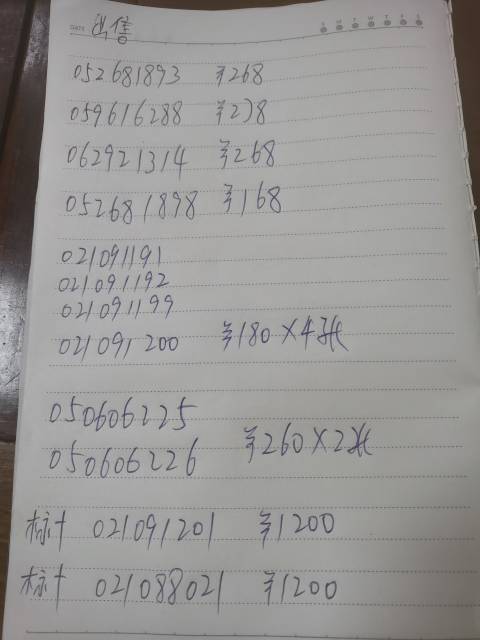 DATE 出售
S M T W T F S
052681893 ¥268
059616288 ¥238
062921314 ¥268
052681898 ¥168
021091191
021091192
021091199
021091200 ¥180×4张
050606225
050606226 ¥260×2张
标十 021091201 ¥1200
标十 021088021 ¥1200